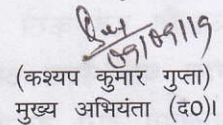 09/09/19
(कश्यप कुमार गुप्ता)
मुख्य अभियंता (द0)।